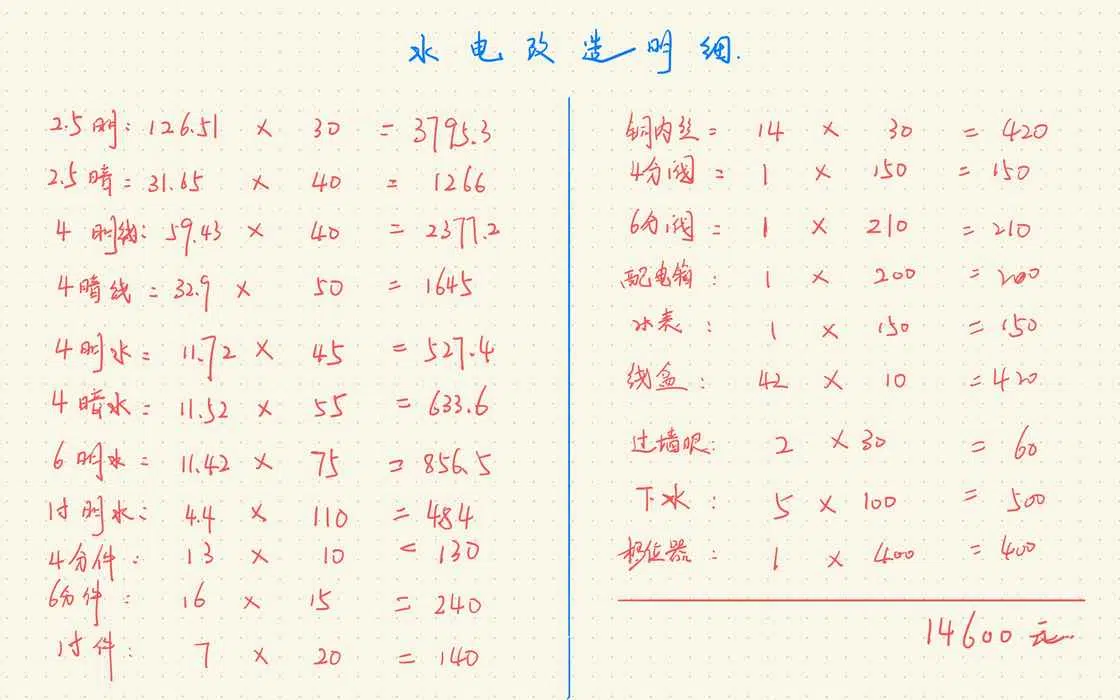 水电改造明细.
2.5明: 126.51 × 30 = 3795.3
2.5暗= 31.65 × 40 = 1266
4 明线: 59.43 × 40 = 2377.2
4暗线= 32.9 × 50 = 1645
4明水= 11.72 × 45 = 527.4
4暗水= 11.52 × 55 = 633.6
6明水= 11.42 × 75 = 856.5
1寸明水: 4.4 × 110 = 484
4分件: 13 × 10 = 130
6分件: 16 × 15 = 240
1寸件: 7 × 20 = 140
铜内丝= 14 × 30 = 420
4分阀= 1 × 150 = 150
6分阀= 1 × 210 = 210
配电箱: 1 × 200 = 200
水表: 1 × 150 = 150
线盒: 42 × 10 = 420
过墙眼: 2 × 30 = 60
下水: 5 × 100 = 500
移位器: 1 × 400 = 400
14600元